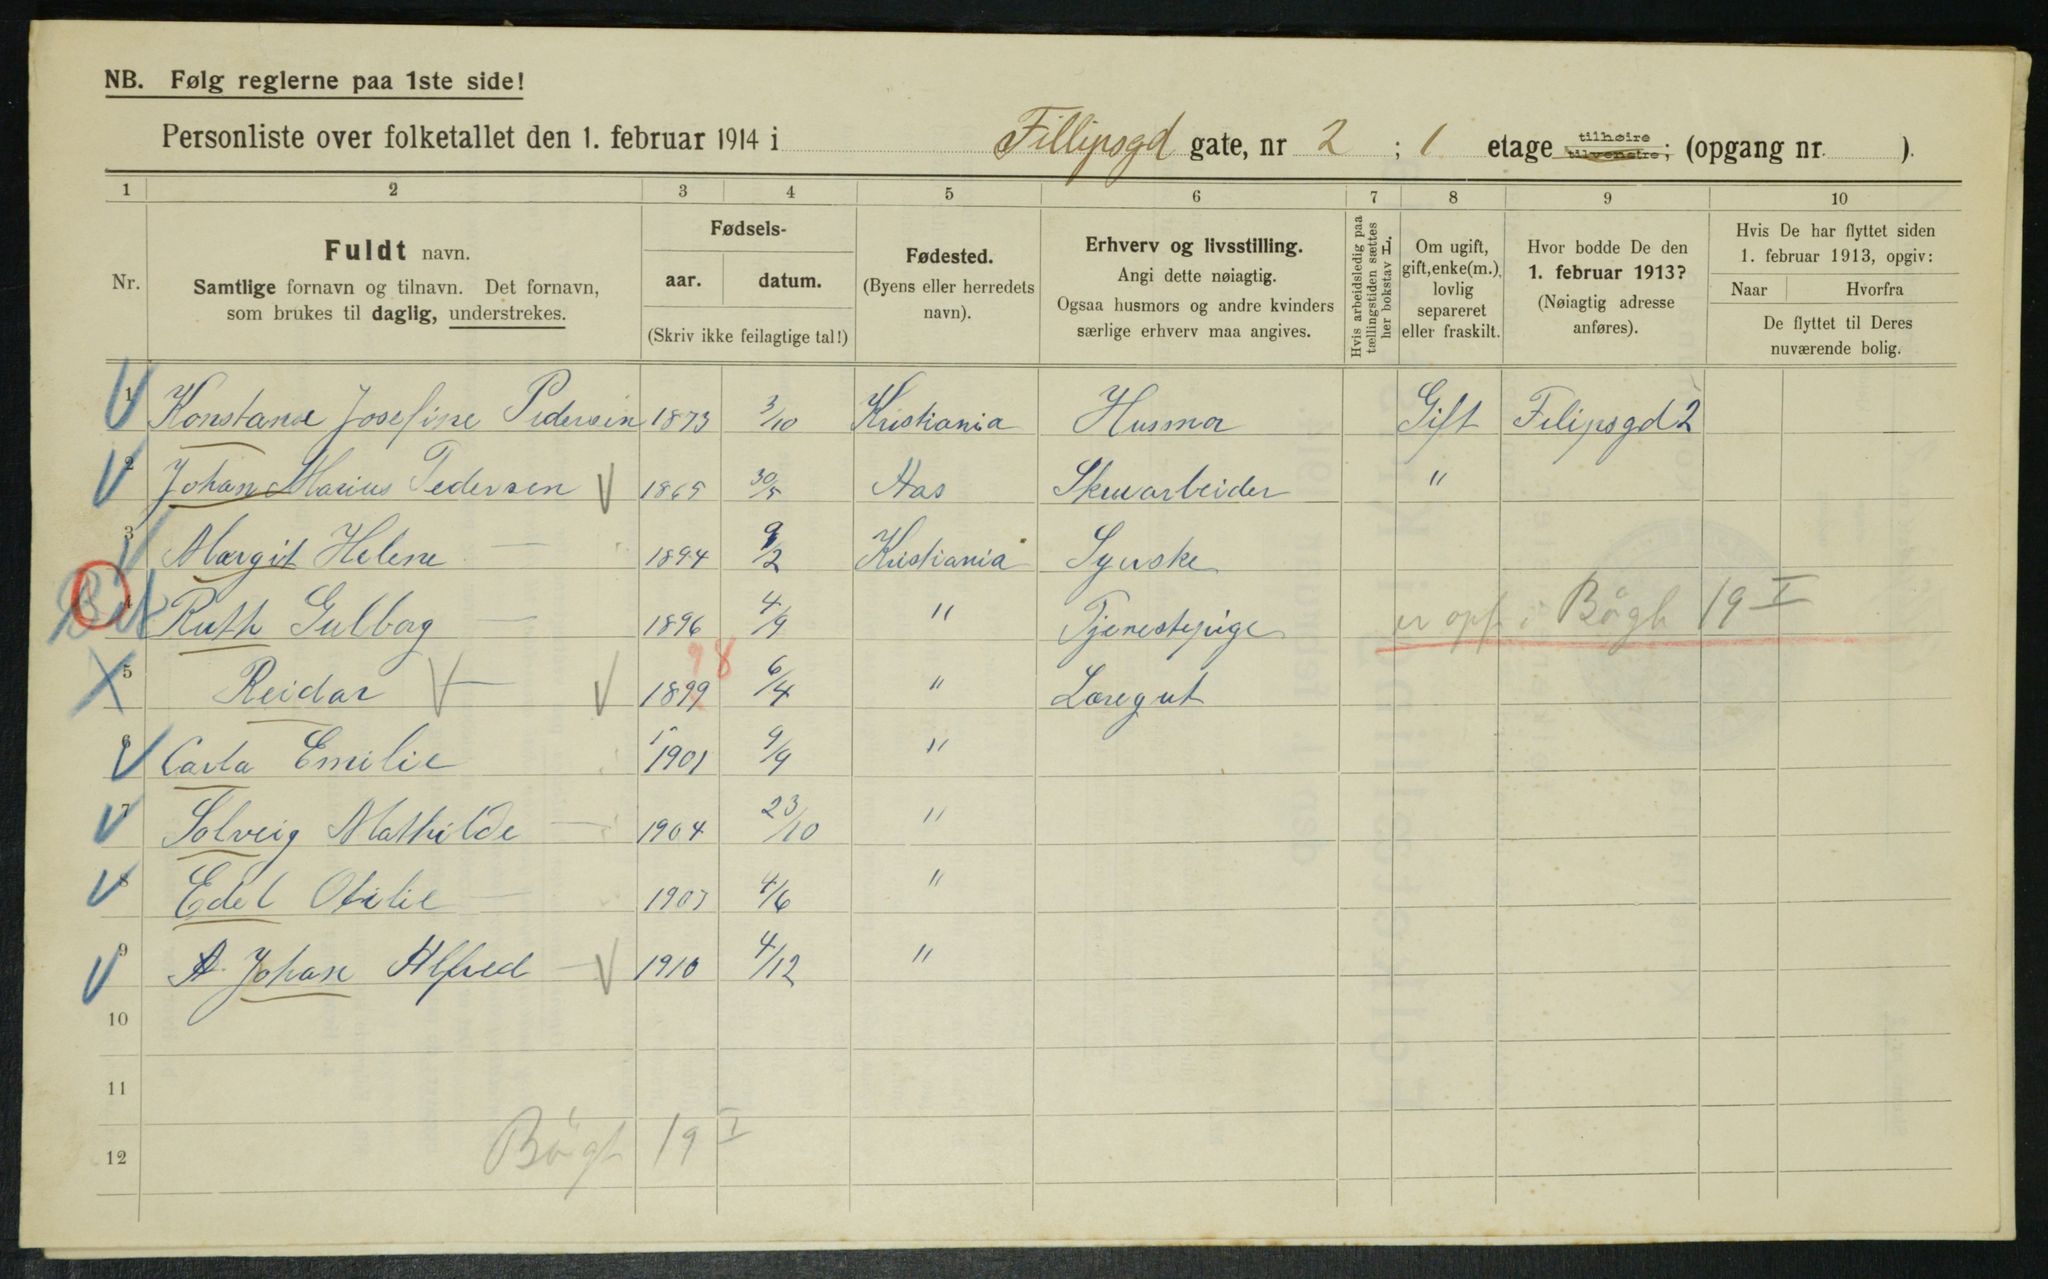 NB. Følg reglerne paa 1ste side!
Personliste over folketallet den 1. februar 1914 i Fillipsgd gate, nr 2 ; 1 etage tilhøire tilvenstre; (opgang nr. ).
1 2 3 4 5 6 7 8 9 10
Nr.
Fuldt navn.
Samtlige fornavn og tilnavn. Det fornavn,
som brukes til daglig, understrekes.
Fødsels-
aar. datum.
(Skriv ikke feilagtige tal!)
Fødested.
(Byens eller herredets
navn).
Erhverv og livsstilling.
Angi dette nøiagtig.
Ogsaa husmors og andre kvinders
særlige erhverv maa angives.
Hvis arbeidsledig paa
tællingstiden sættes
her bokstav L.
Om ugift,
gift, enke(m.),
lovlig
separeret
eller fraskilt.
Hvor bodde De den
1. februar 1913?
(Nøiagtig adresse
anføres).
Hvis De har flyttet siden
1. februar 1913, opgiv:
Naar Hvorfra
De flyttet til Deres
nuværende bolig.
1 Konstanse Josefine Pedersen 1873 3/10 Kristiania Husmor Gift Filipsgd 2
2 Johan Marius Pedersen V 1865 30/5 Aas Skuarbeider "
3 Margit Helene — 1894 9/2 Kristiania Syerske
4 Ruth Gulborg — 1896 4/9 " Tjenestepige er opf i Bögh 19 I
98
5 Reidar — V 1899 6/4 " Læregut
6 Carla Emilie 1901 9/9 "
7 Solveig Mathilde — 1904 23/10 "
8 Edel Otilie — 1907 4/6 "
9 A. Johan Alfred — V 1910 4/12 "
10
11
12 Bögh 19 I